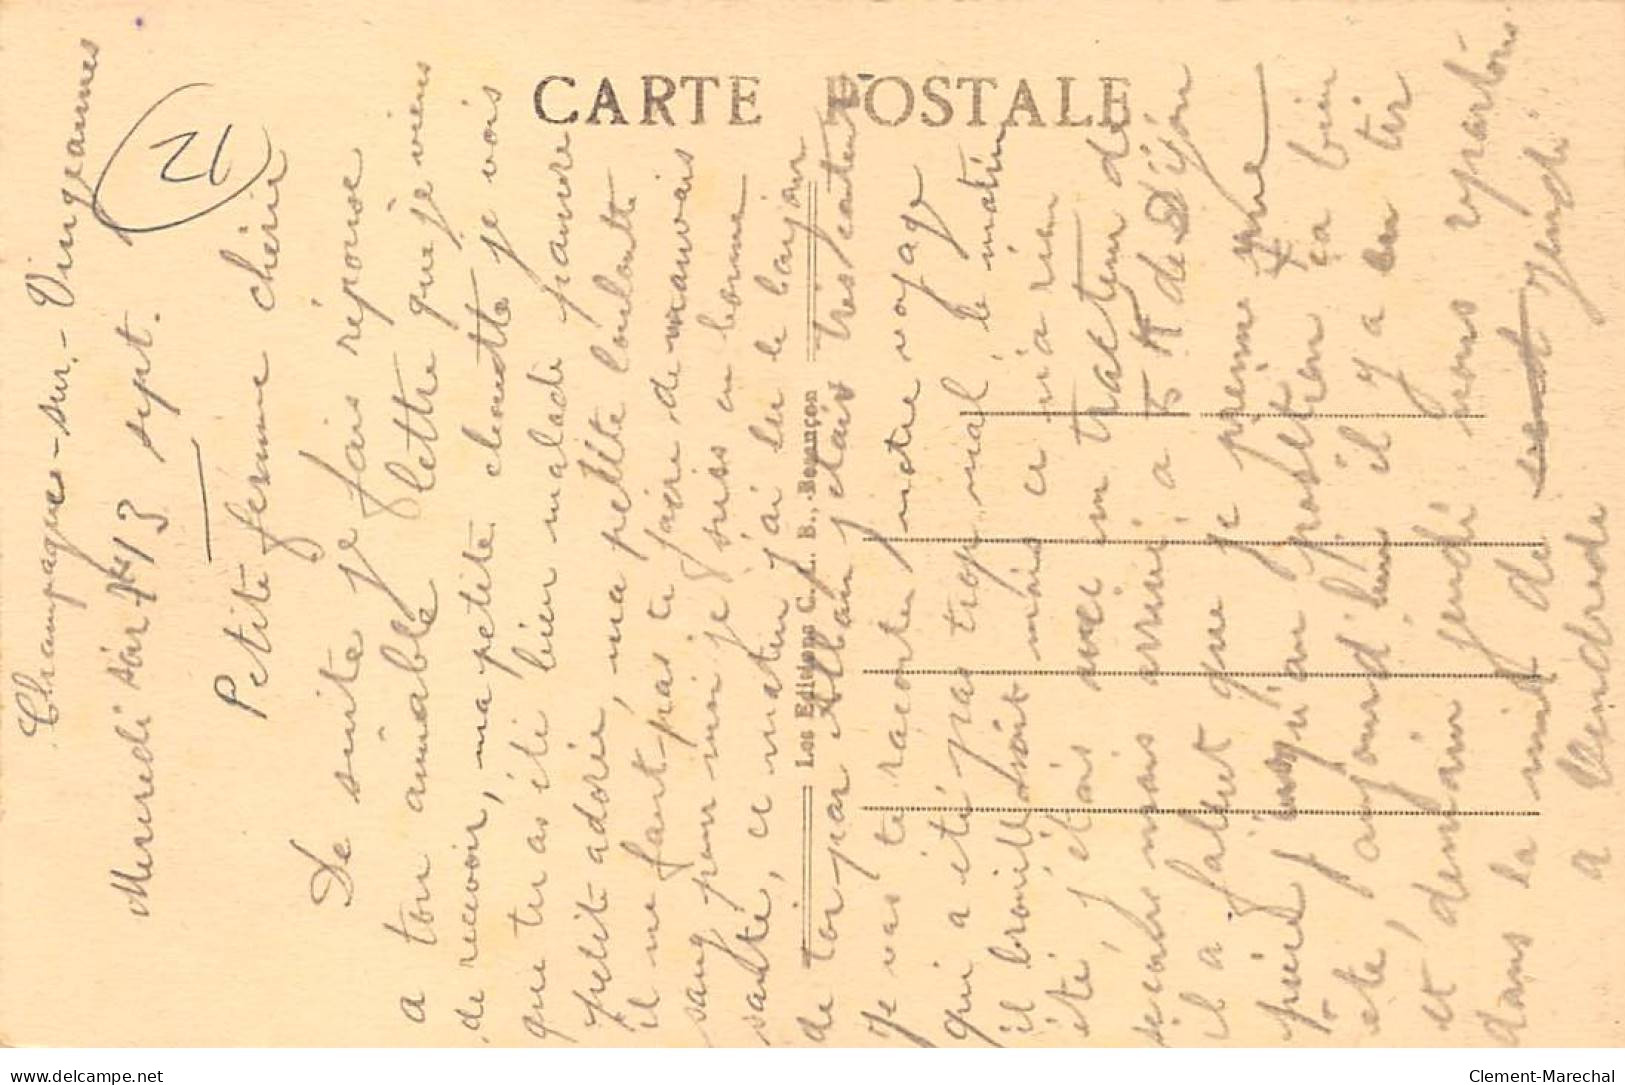 CARTE POSTALE
Les Editions C. L. B., Besançon
21
Champagne-sur-Vingeannes
Mercredi soir 13 sept.
Petite femme chérie
De suite je fais réponse
a ton aimable lettre que je viens
de recevoir, ma petite chouette je vois
que tu as été bien malade pauvre
petite adorée, ma petite louloute
il ne faut pas te faire de mauvais
sang pour moi je suis en bonne
santé, ce matin j'ai eu le bonjour
de toi par Alban j'etais très content
Je vas te raconter notre voyage
qui a été pas trop mal, le matin
il brouillssait mais ce n'a rien
été, j'étais avec un tracteur de
secours mais arrivé a 5 K de Dijon
il a fallut que je prenne une
pièce jusqu'au position ca bien
eté, aujourd'hui il y a eu tir
et demain jeudi nous repartons
dans la nuit de jeudi
a Vendredi
delcampe.net
Clement-Marechal